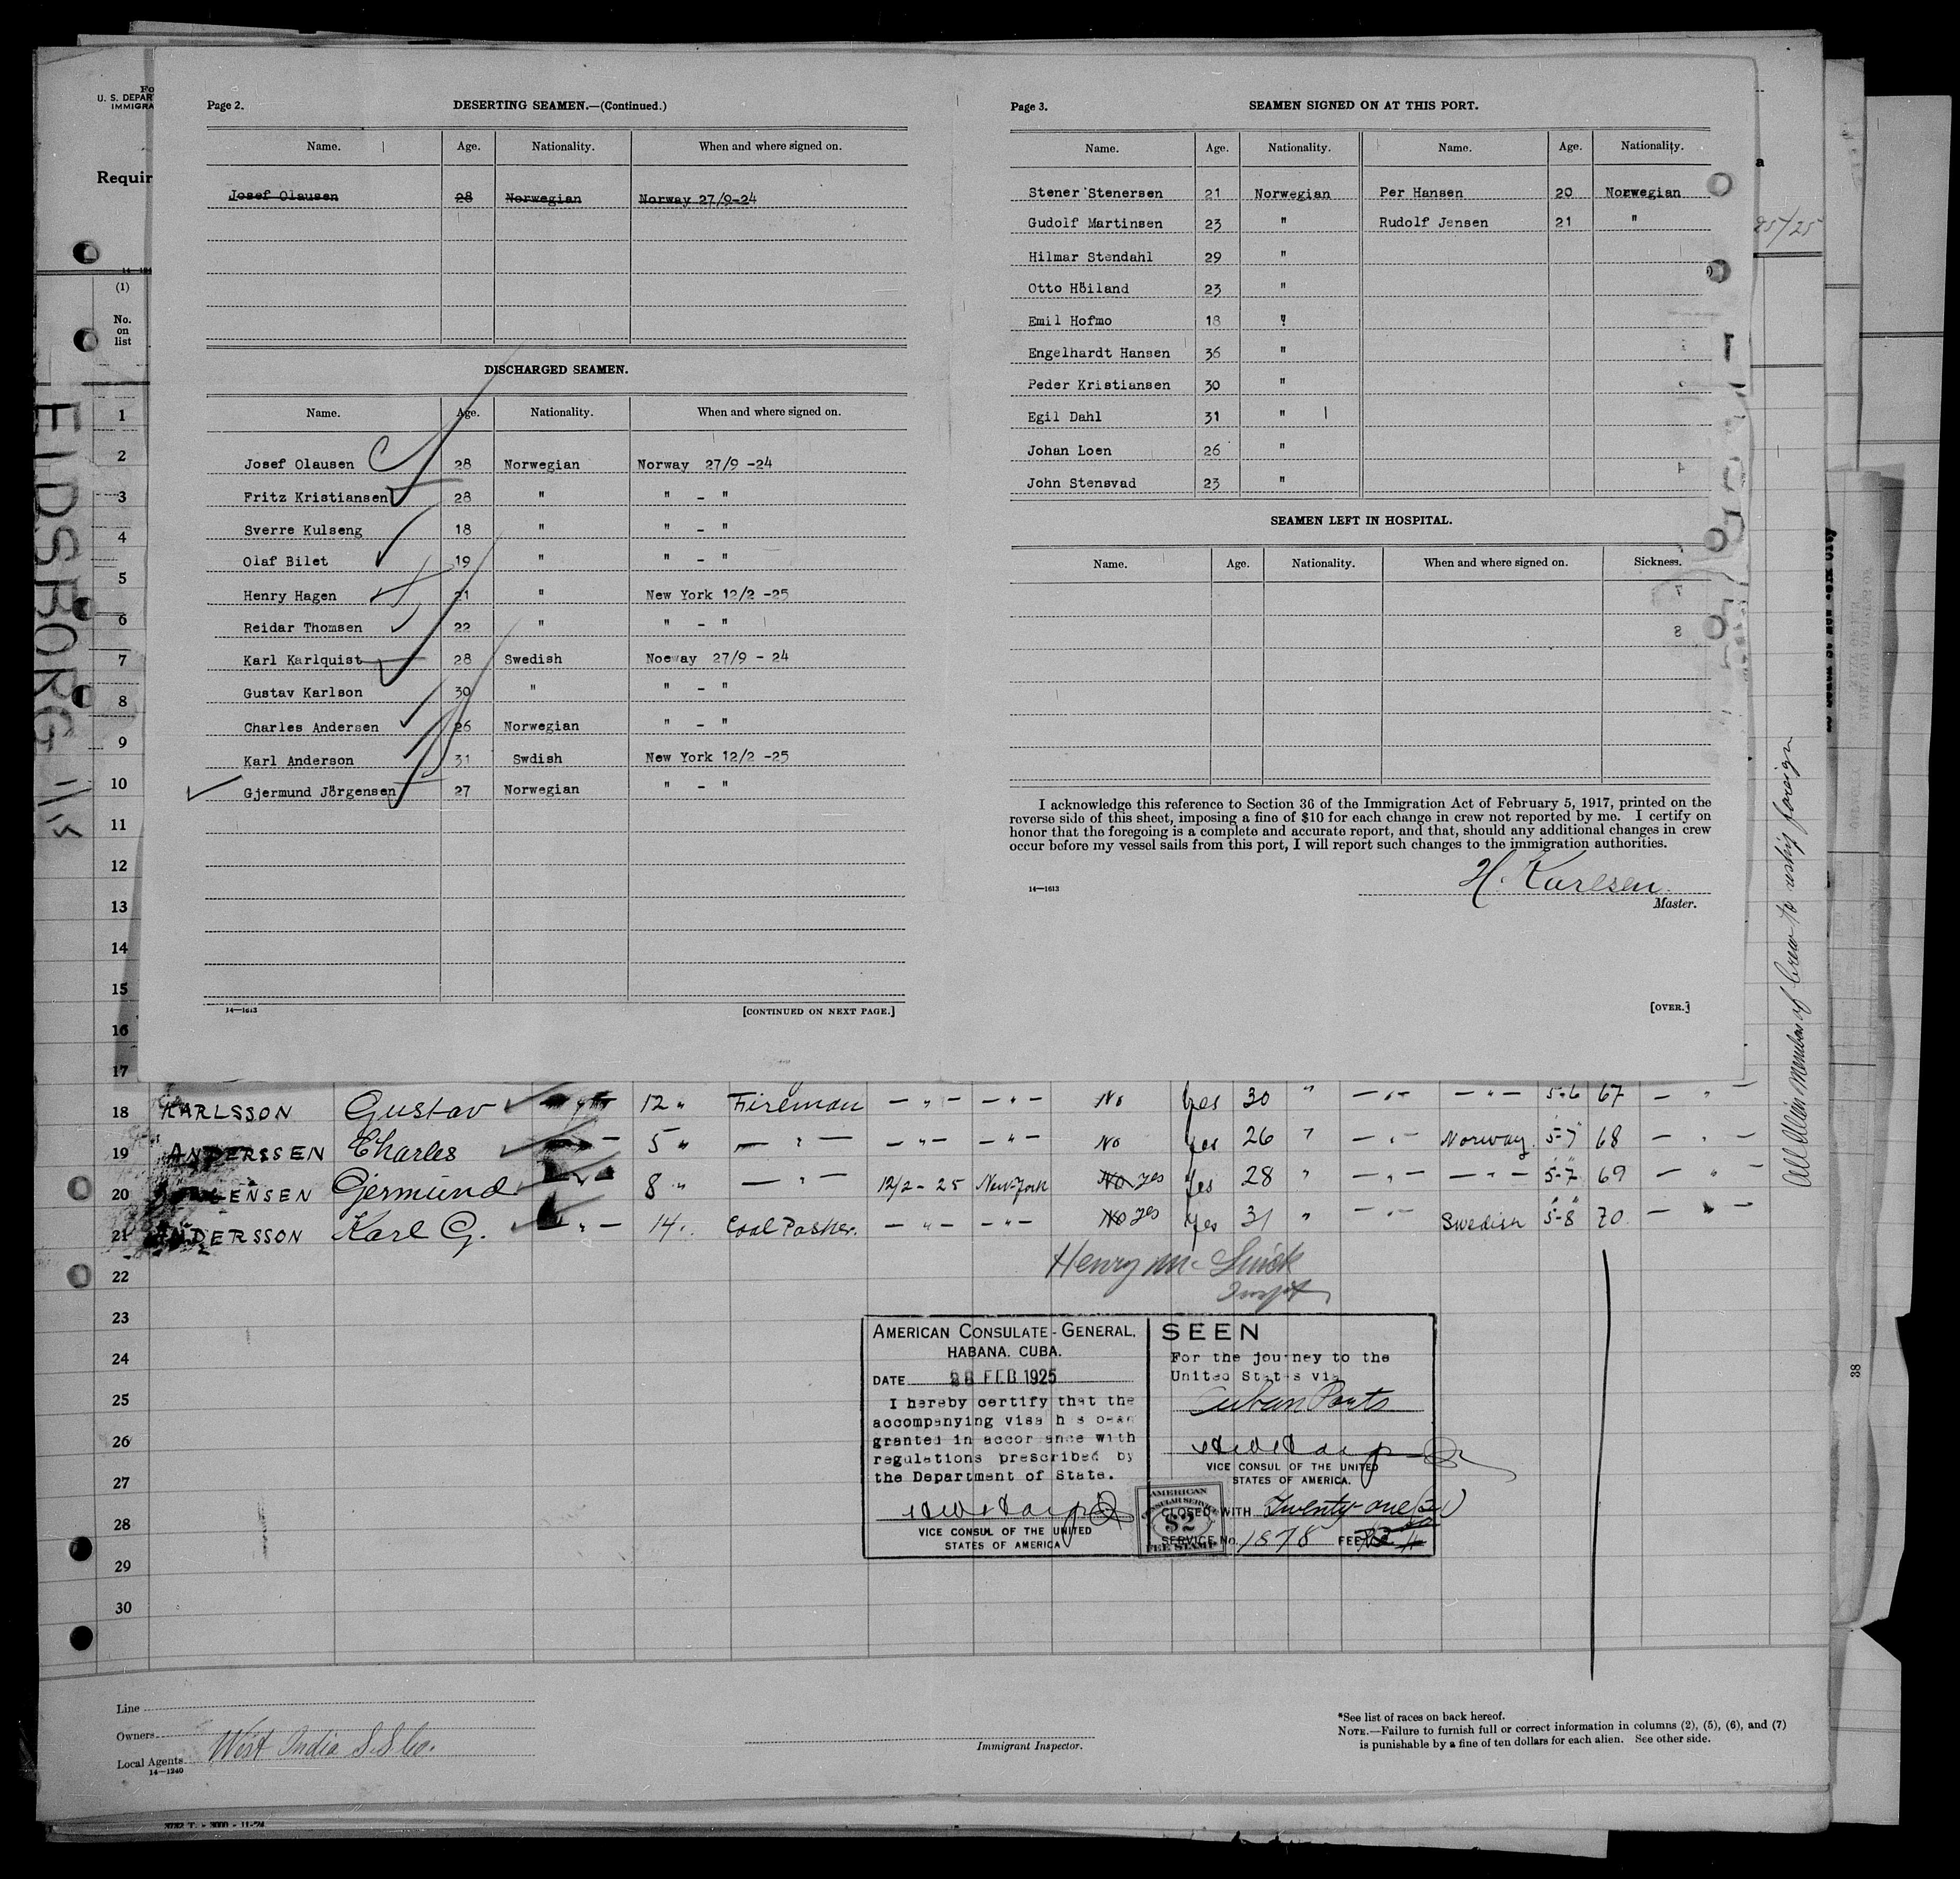 Page 2.
DESERTING SEAMEN.—(Continued.)
Name. Age. Nationality. When and where signed on.
Josef Olausen 28 Norwegian Norway 27/9-24
DISCHARGED SEAMEN.
Name. Age. Nationality. When and where signed on.
Josef Olausen 28 Norwegian Norway 27/9 -24
Fritz Kristiansen 28 " " - "
Sverre Kulseng 18 " " - "
Olaf Bilet 19 " " - "
Henry Hagen 21 " New York 12/2 -25
Reidar Thomsen 22 " " - "
Karl Karlquist 28 Swedish Noeway 27/9 - 24
Gustav Karlson 30 " " - "
Charles Andersen 26 Norwegian " - "
Karl Anderson 31 Swdish New York 12/2 -25
Gjermund Jörgensen 27 Norwegian " - "
14—1613
[CONTINUED ON NEXT PAGE.]
Page 3.
SEAMEN SIGNED ON AT THIS PORT.
Name. Age. Nationality. Name. Age. Nationality.
Stener Stenersen 21 Norwegian Per Hansen 20 Norwegian
Gudolf Martinsen 23 " Rudolf Jensen 21 "
Hilmar Stendahl 29 "
Otto Höiland 23 "
Emil Hofmo 18 "
Engelhardt Hansen 36 "
Peder Kristiansen 30 "
Egil Dahl 31 "
Johan Loen 26 "
John Stensvad 23 "
SEAMEN LEFT IN HOSPITAL.
Name. Age. Nationality. When and where signed on. Sickness.
I acknowledge this reference to Section 36 of the Immigration Act of February 5, 1917, printed on the
reverse side of this sheet, imposing a fine of $10 for each change in crew not reported by me. I certify on
honor that the foregoing is a complete and accurate report, and that, should any additional changes in crew
occur before my vessel sails from this port, I will report such changes to the immigration authorities.
H. Karlsen.
14—1613
Master.
[OVER.]
U. S. DEPAR
IMMIGRA
Requir
(1)
No.
on
list
1
2
3
4
5
6
7
8
9
10
11
12
13
14
15
16
17
EIDSBORG
25/25
All Alien members of Crew to reship foreign
18 KARLSSON Gustav 12 " Fireman — " — — " — No Yes 30 " — " — — " — 5-6 67 — " —
19 ANDERSSEN Charles 5 " — " — — " — — " — No Yes 26 " — " — Norway 5-7 68 — " —
20 ENSEN Germund 8 " — " — 12/2-25 New-York No yes Yes 28 " — " — — " — 5-7 69 — " —
21 ANDERSSON Karl G. — " — 14 " Coal Passer. — " — — " — No yes Yes 31 " — " — Swedish 5-8 70 — " —
22
23
24
25
26
27
28
29
30
Henry
AMERICAN CONSULATE-GENERAL,
HABANA, CUBA.
DATE 28 FEB 1925
I hereby certify that the
accompanying visa h s b en
granted in accor ance with
regulations prescribed by
the Department of State.
VICE CONSUL OF THE UNITED
STATES OF AMERICA
SEEN
For the journey to the
United States via
Cuban Ports
VICE CONSUL OF THE UNITED
STATES OF AMERICA.
CLOSED WITH Twenty-one (21)
SERVICE No. 1878 FEE
AMERICAN
CONSULAR SERVICE
$2
FEE STAMP
Line
Owners
Local Agents West India S.S. Co.
14—1240
Immigrant Inspector.
*See list of races on back hereof.
NOTE.—Failure to furnish full or correct information in columns (2), (5), (6), and (7)
is punishable by a fine of ten dollars for each alien. See other side.
38